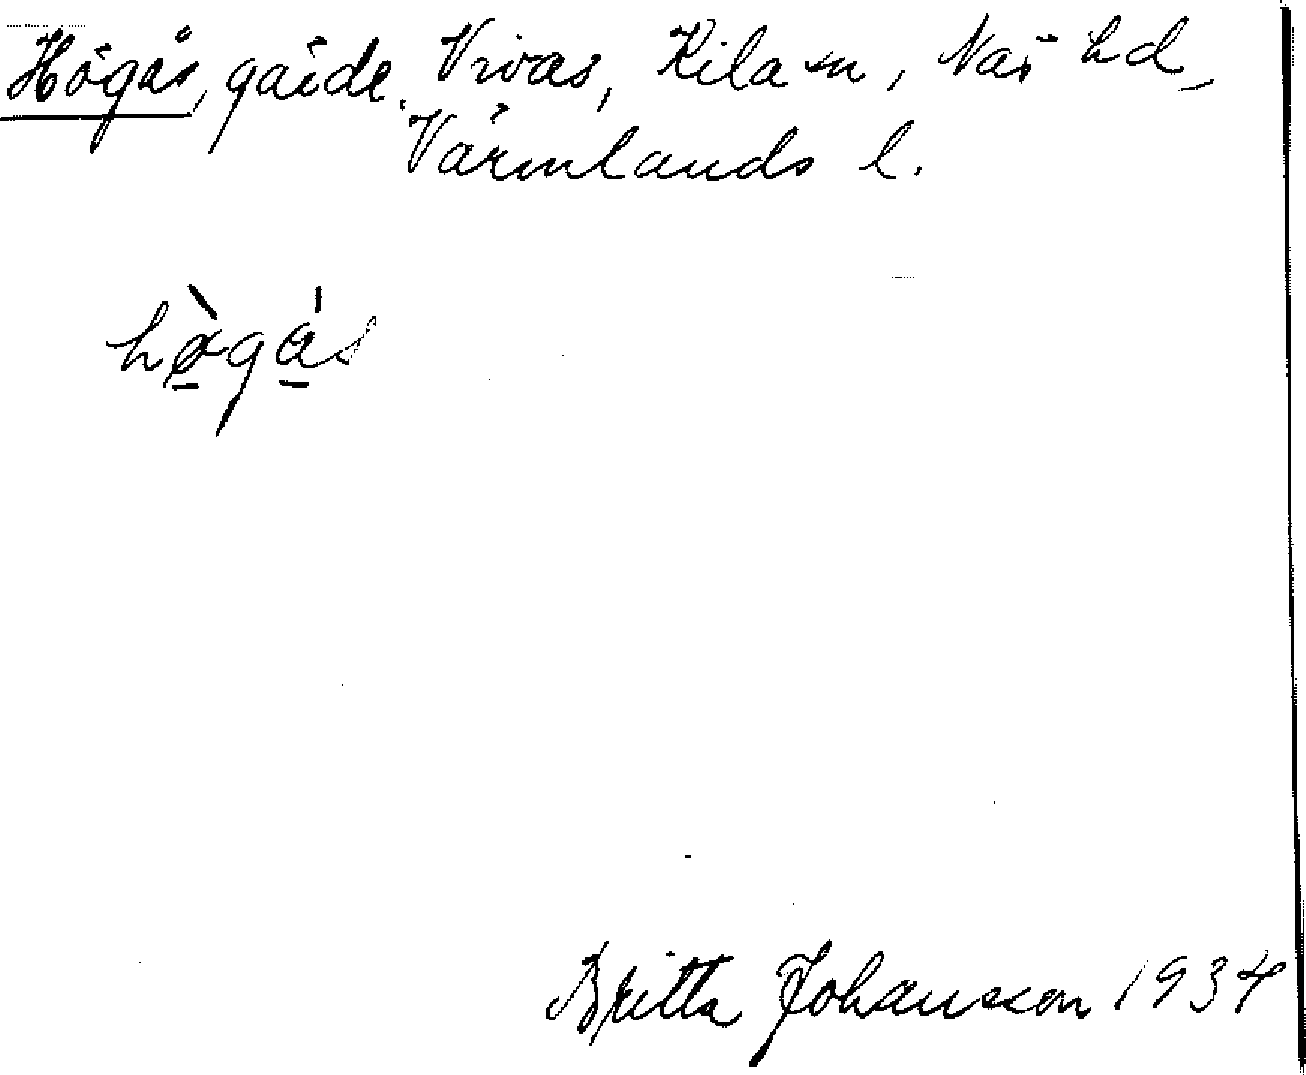 Högås, gärde, Vivas, Kila sn, Näs hd,
Värmlands l.
hø̀gás
Britta Johansson 1934